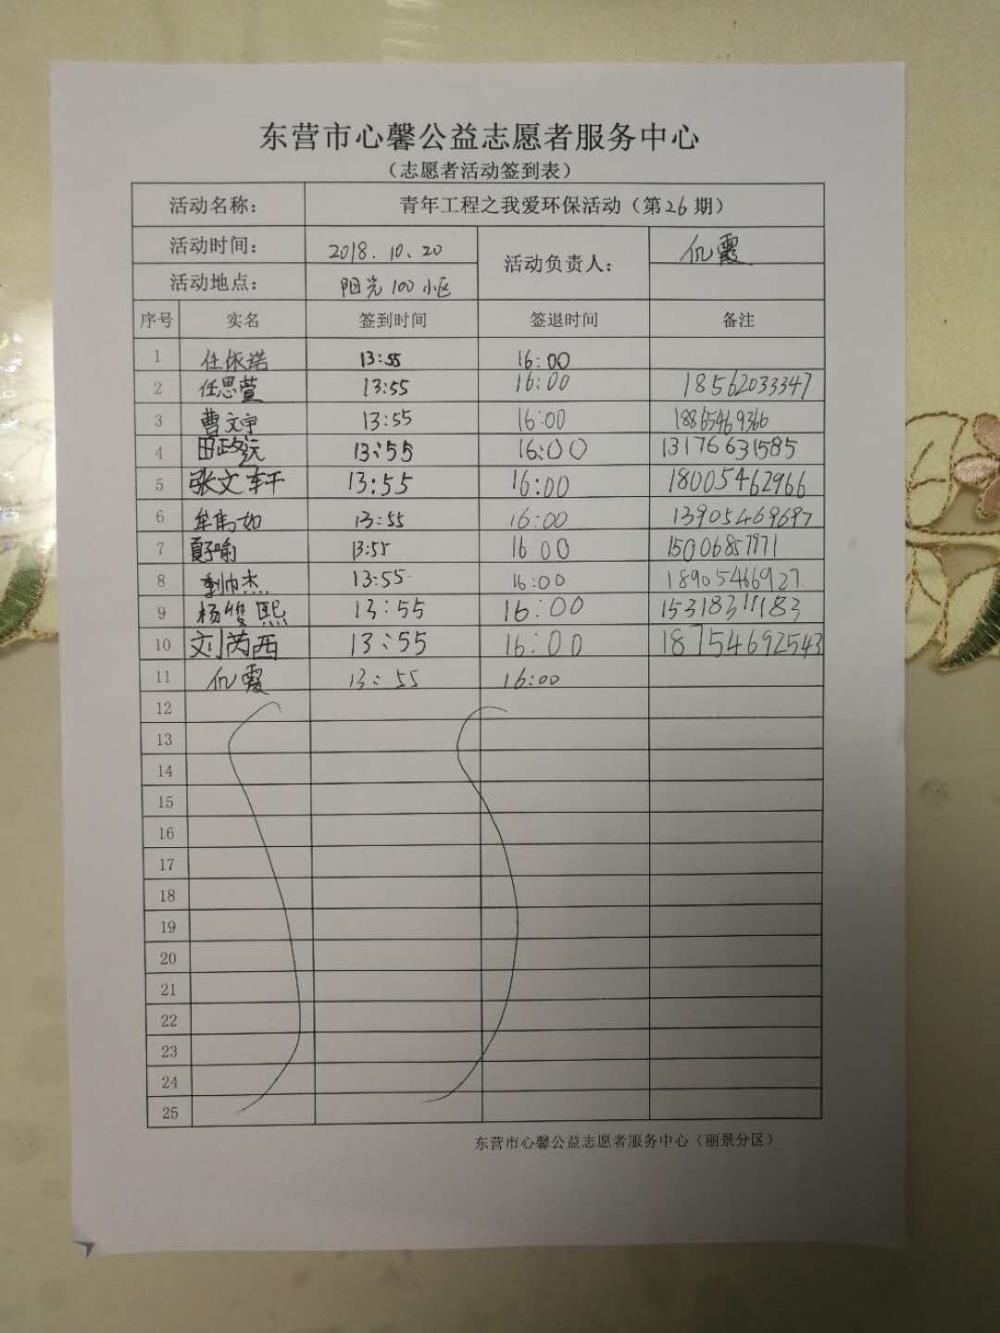 东营市心馨公益志愿者服务中心
（志愿者活动签到表）
活动名称： 青年工程之我爱环保活动（第26期）
活动时间： 2018.10、20 活动负责人： 仉霞
活动地点： 阳光100小区
序号 实名 签到时间 签退时间 备注
1 任依诺 13:55 16:00
2 任思萱 13:55 16:00 18562033347
3 曹文宇 13:55 16:00 18865469366
4 田政远 13:55 16:00 13176631585
5 张文轩 13:55 16:00 18005462966
6 13:55 16:00 13905469697
7 13:55 16:00
8 13:55 16:00 18905466927
9 杨俊熙 13:55 16:00 15318311183
10 刘芮西 13:55 16:00 18754692543
11 仉霞 13:55 16:00
12
13
14
15
16
17
18
19
20
21
22
23
24
25
东营市心馨公益志愿者服务中心（丽景分区）